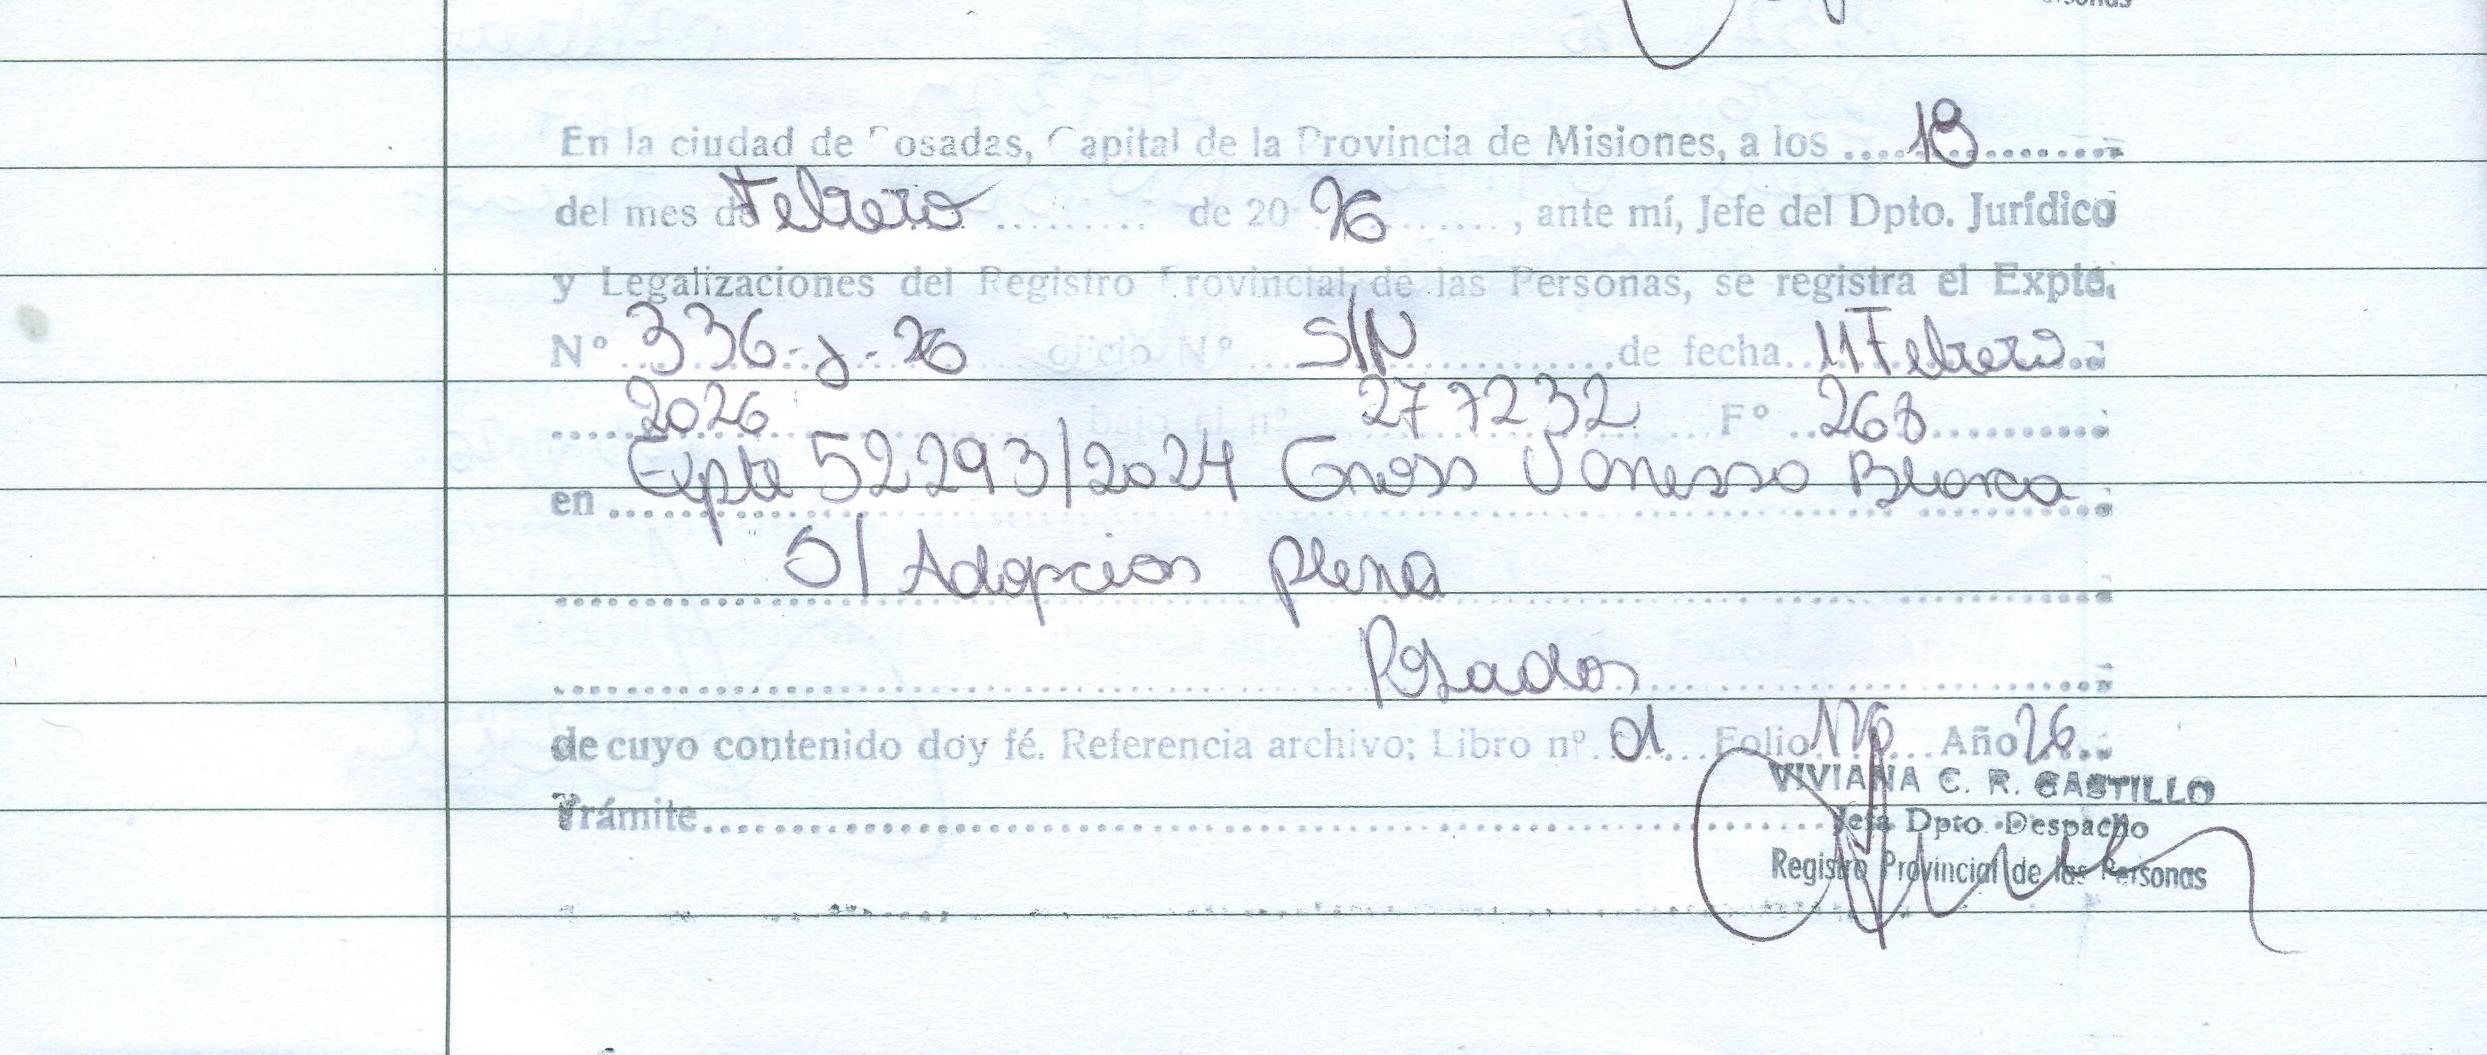 En la ciudad de Posadas, Capital de la Provincia de Misiones, a los .... 19 ........
del mes de Febrero ......... de 20 26 ...... , ante mí, Jefe del Dpto. Jurídico
y Legalizaciones del Registro Provincial de las Personas, se registra el Expte.
N° .. 336-J-26 oficio N° ... S/N ............ de fecha .. 11 Febrero ..
..... 2026 ......... bajo la n° 277232 ... F° .. 268 ..........
en ... Expte 52293/2024 Gross Vanessa Blanca
S/ Adopcion plena
Posadas
de cuyo contenido doy fé. Referencia archivo: Libro n° 01 ... Folio ... Año 26 ..
VIVIANA C. R. CASTILLO
Trámite..............................
Jefa Dpto. Despacho
Registro Provincial de las Personas